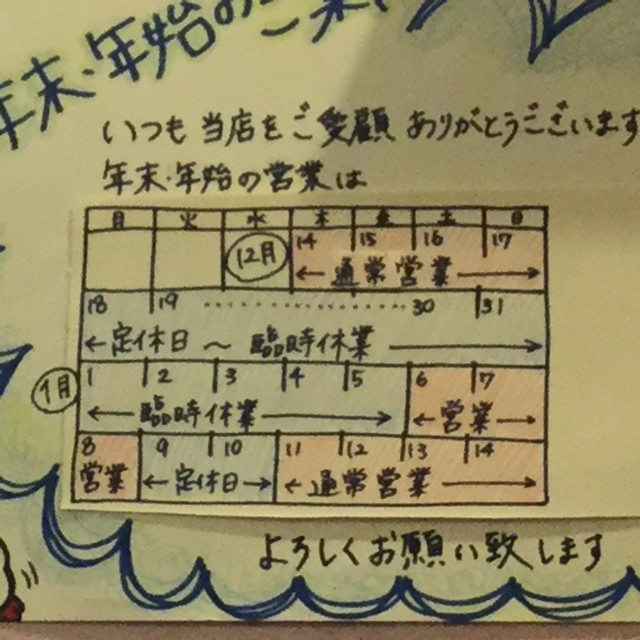 年末・年始のご案
いつも当店をご愛顧ありがとうございます
年末・年始の営業は
月 火 水 木 金 土 日
12月 14 15 16 17
← 通常営業 →
18 19 ………… 30 31
← 定休日 〜 臨時休業 →
1月 1 2 3 4 5 6 7
← 臨時休業 → ← 営業 →
8 9 10 11 12 13 14
営業 ← 定休日 → ← 通常営業 →
よろしくお願い致します